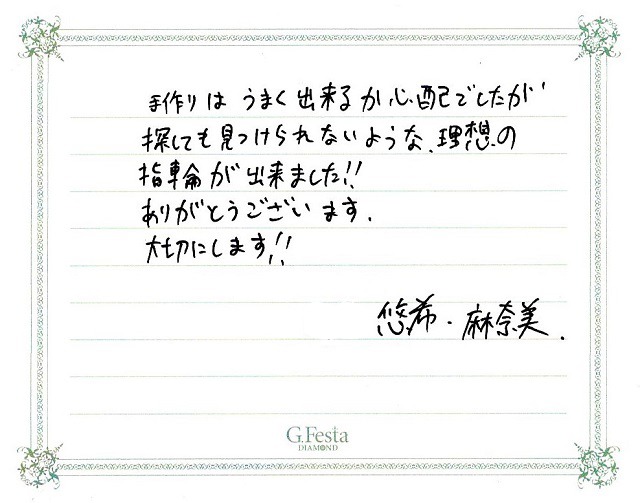 手作りは うまく出来るか心配でしたが
探しても見つけられないような、理想の
指輪が出来ました!!
ありがとうございます.
大切にします!!
悠希・麻奈美.
G.Festa
DIAMOND